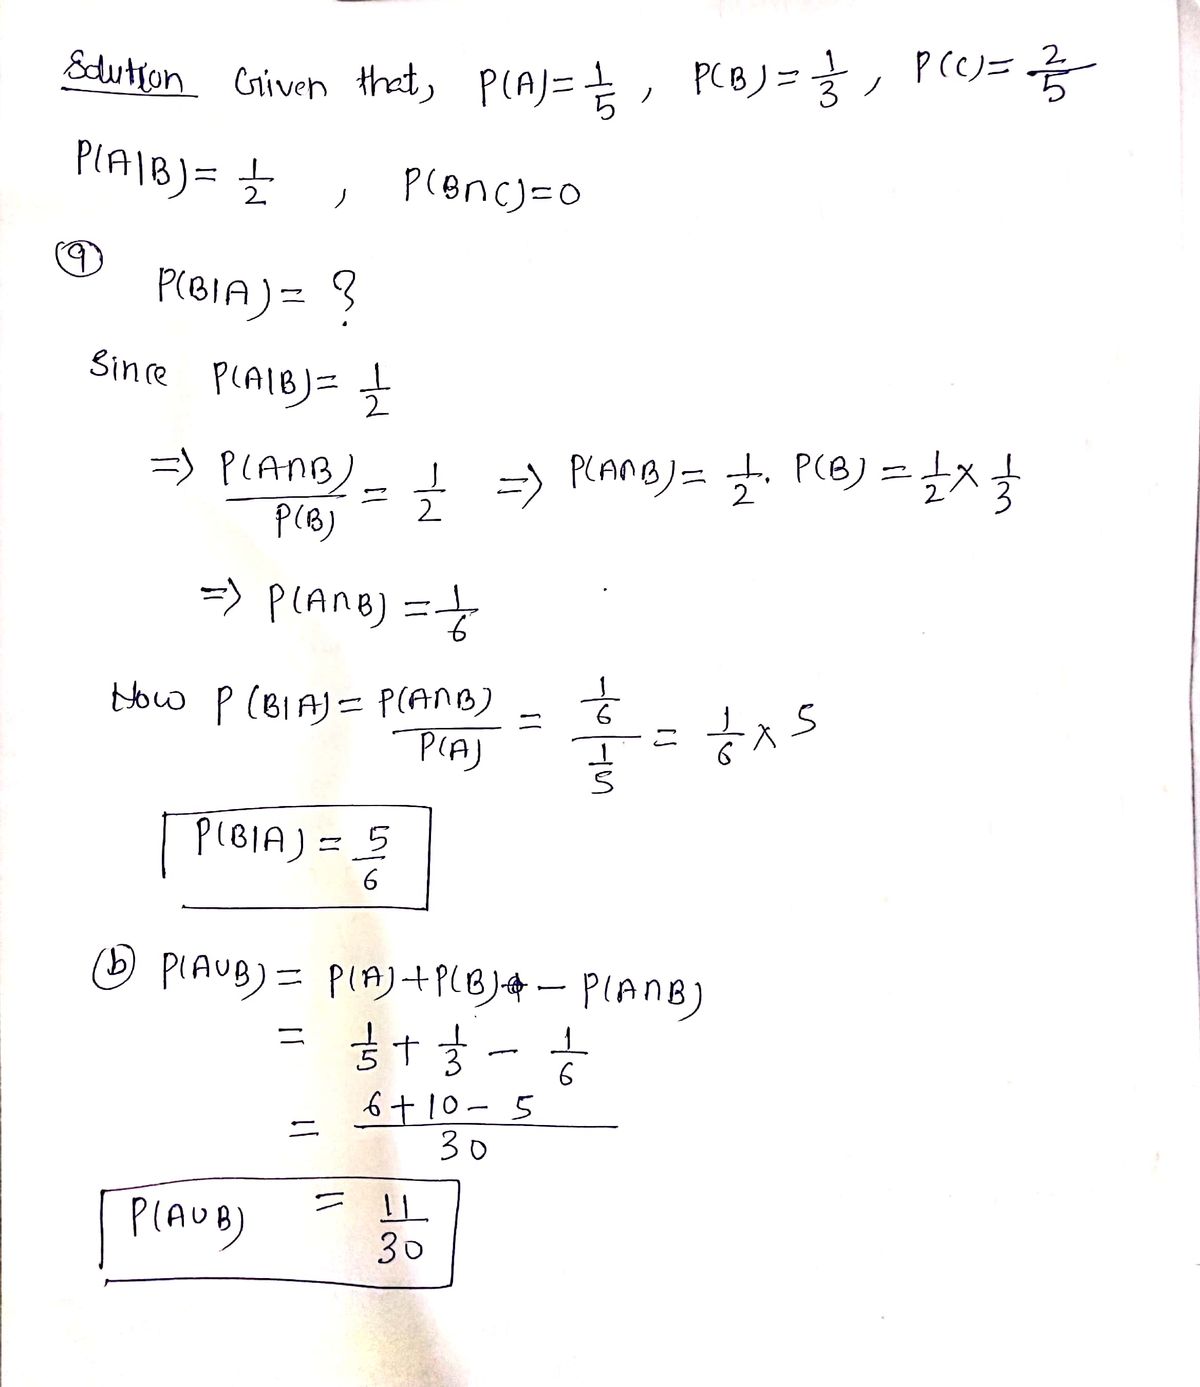 Solution Given that, P(A)= 1/5 , P(B)= 1/3 , P(C)= 2/5
P(A|B)= 1/2 , P(B∩C)=0
(a)
P(B|A)= ?
Since P(A|B)= 1/2
=> P(A∩B)/P(B) = 1/2 => P(A∩B)= 1/2 . P(B) = 1/2 × 1/3
=> P(A∩B) = 1/6
Now P(B|A)= P(A∩B)/P(A) = (1/6)/(1/5) = 1/6 × 5
P(B|A) = 5/6
(b) P(A∪B) = P(A)+P(B) - P(A∩B)
= 1/5 + 1/3 - 1/6
= (6+10-5)/30
P(A∪B) = 11/30